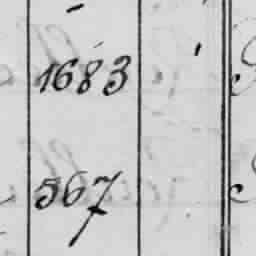 1683
567